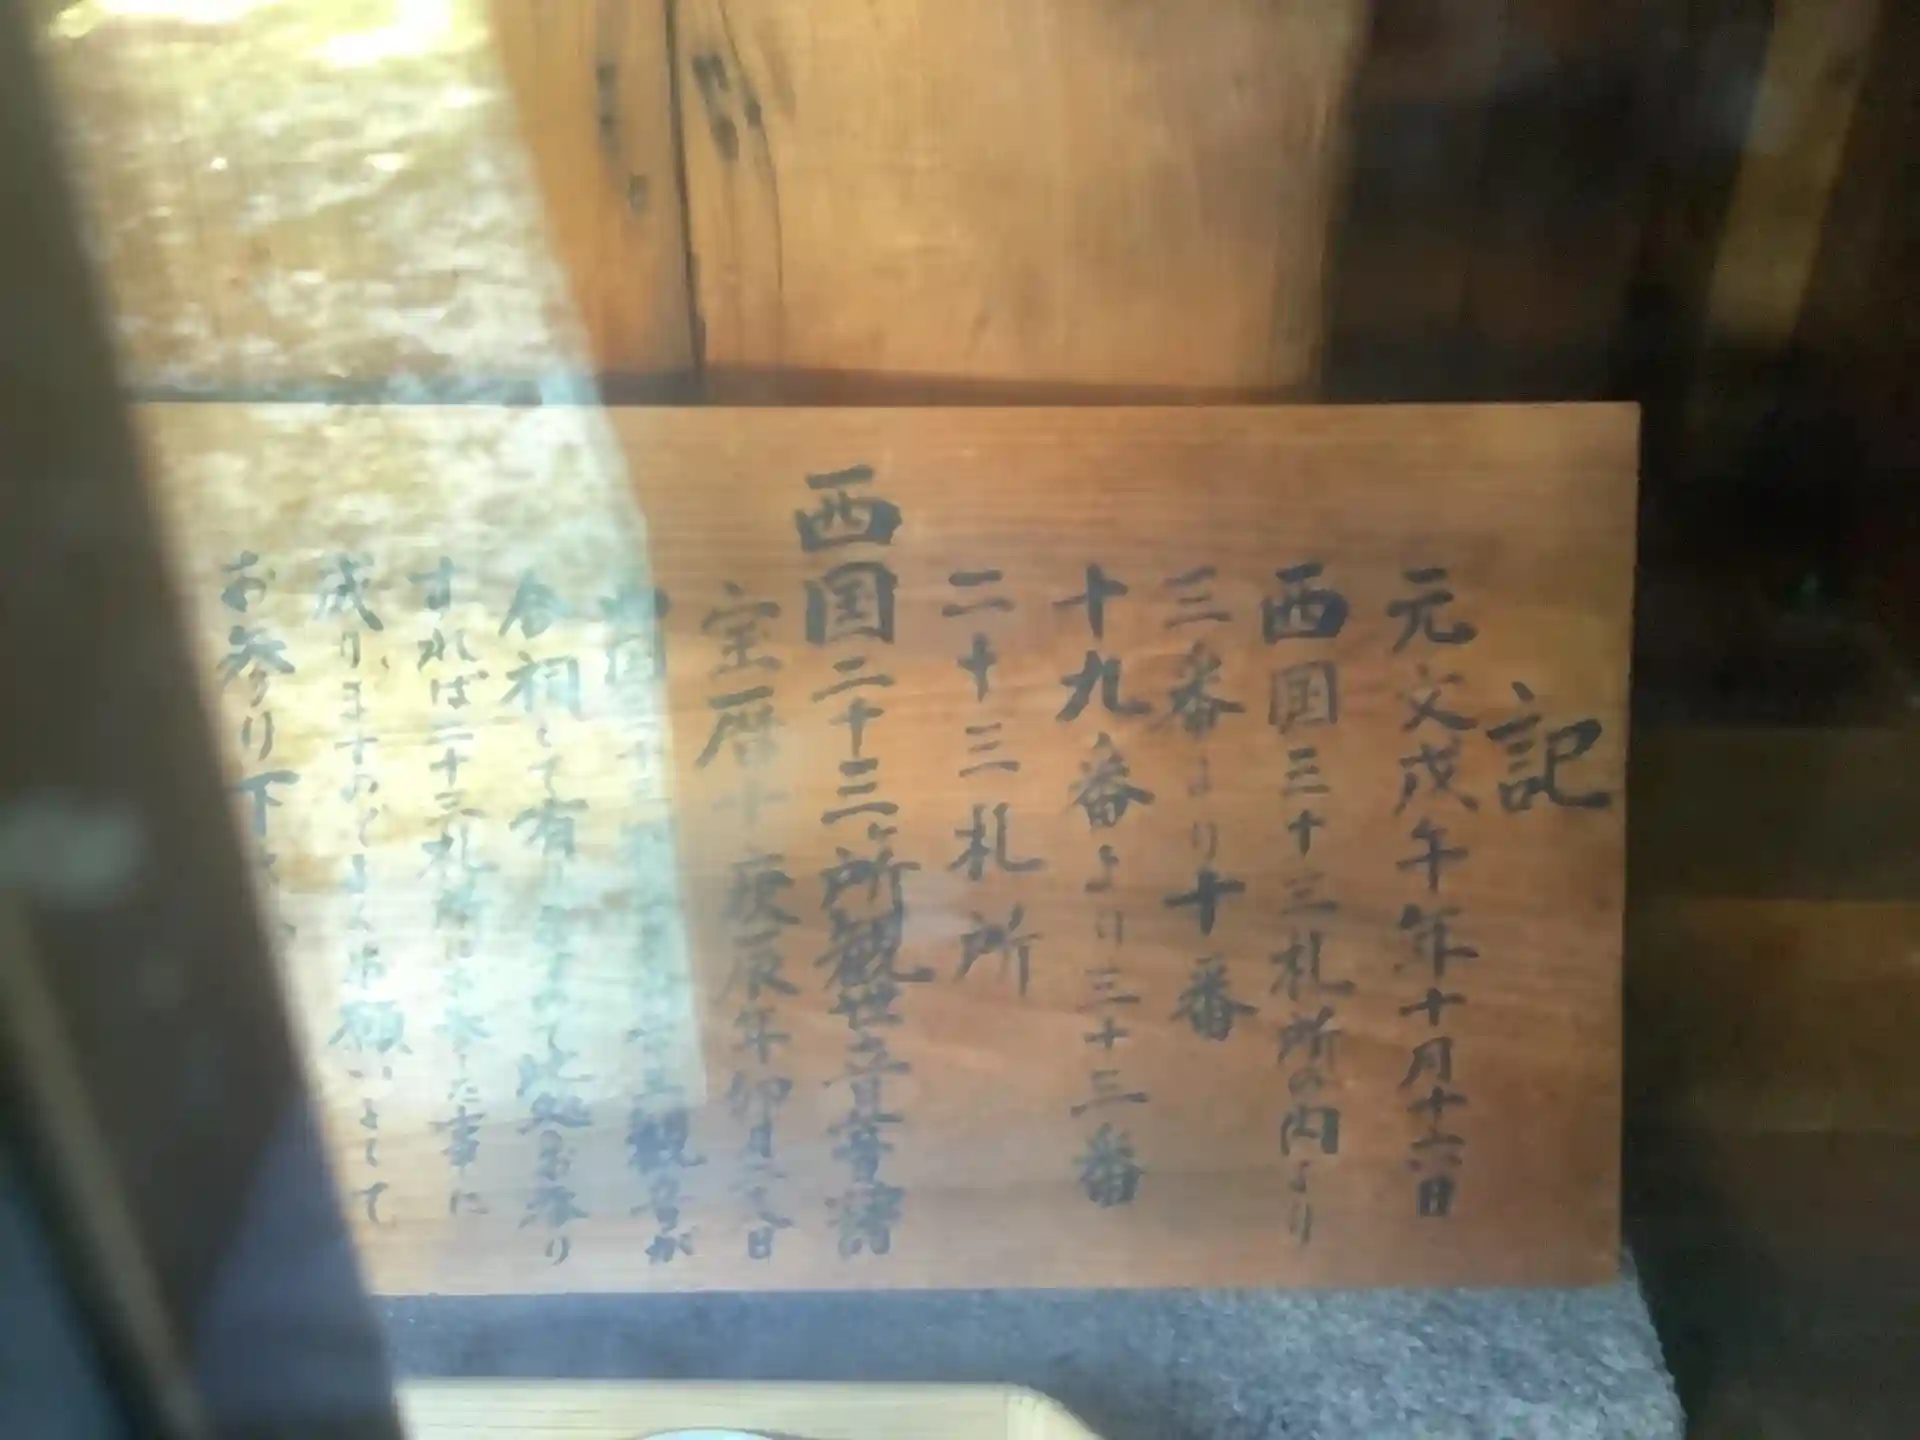 記
元文戊午年十月十六日
西国三十三札所の内より
三番より十番
十九番より三十三番
二十三札所
西国二十三ヶ所観世音菩薩
宝暦十庚辰年卯月二七日
観音が
合祠して有りますので此処お参り
すれば二十三札所にお参りした事に
成りますのでよくお願いして
お参り下さい